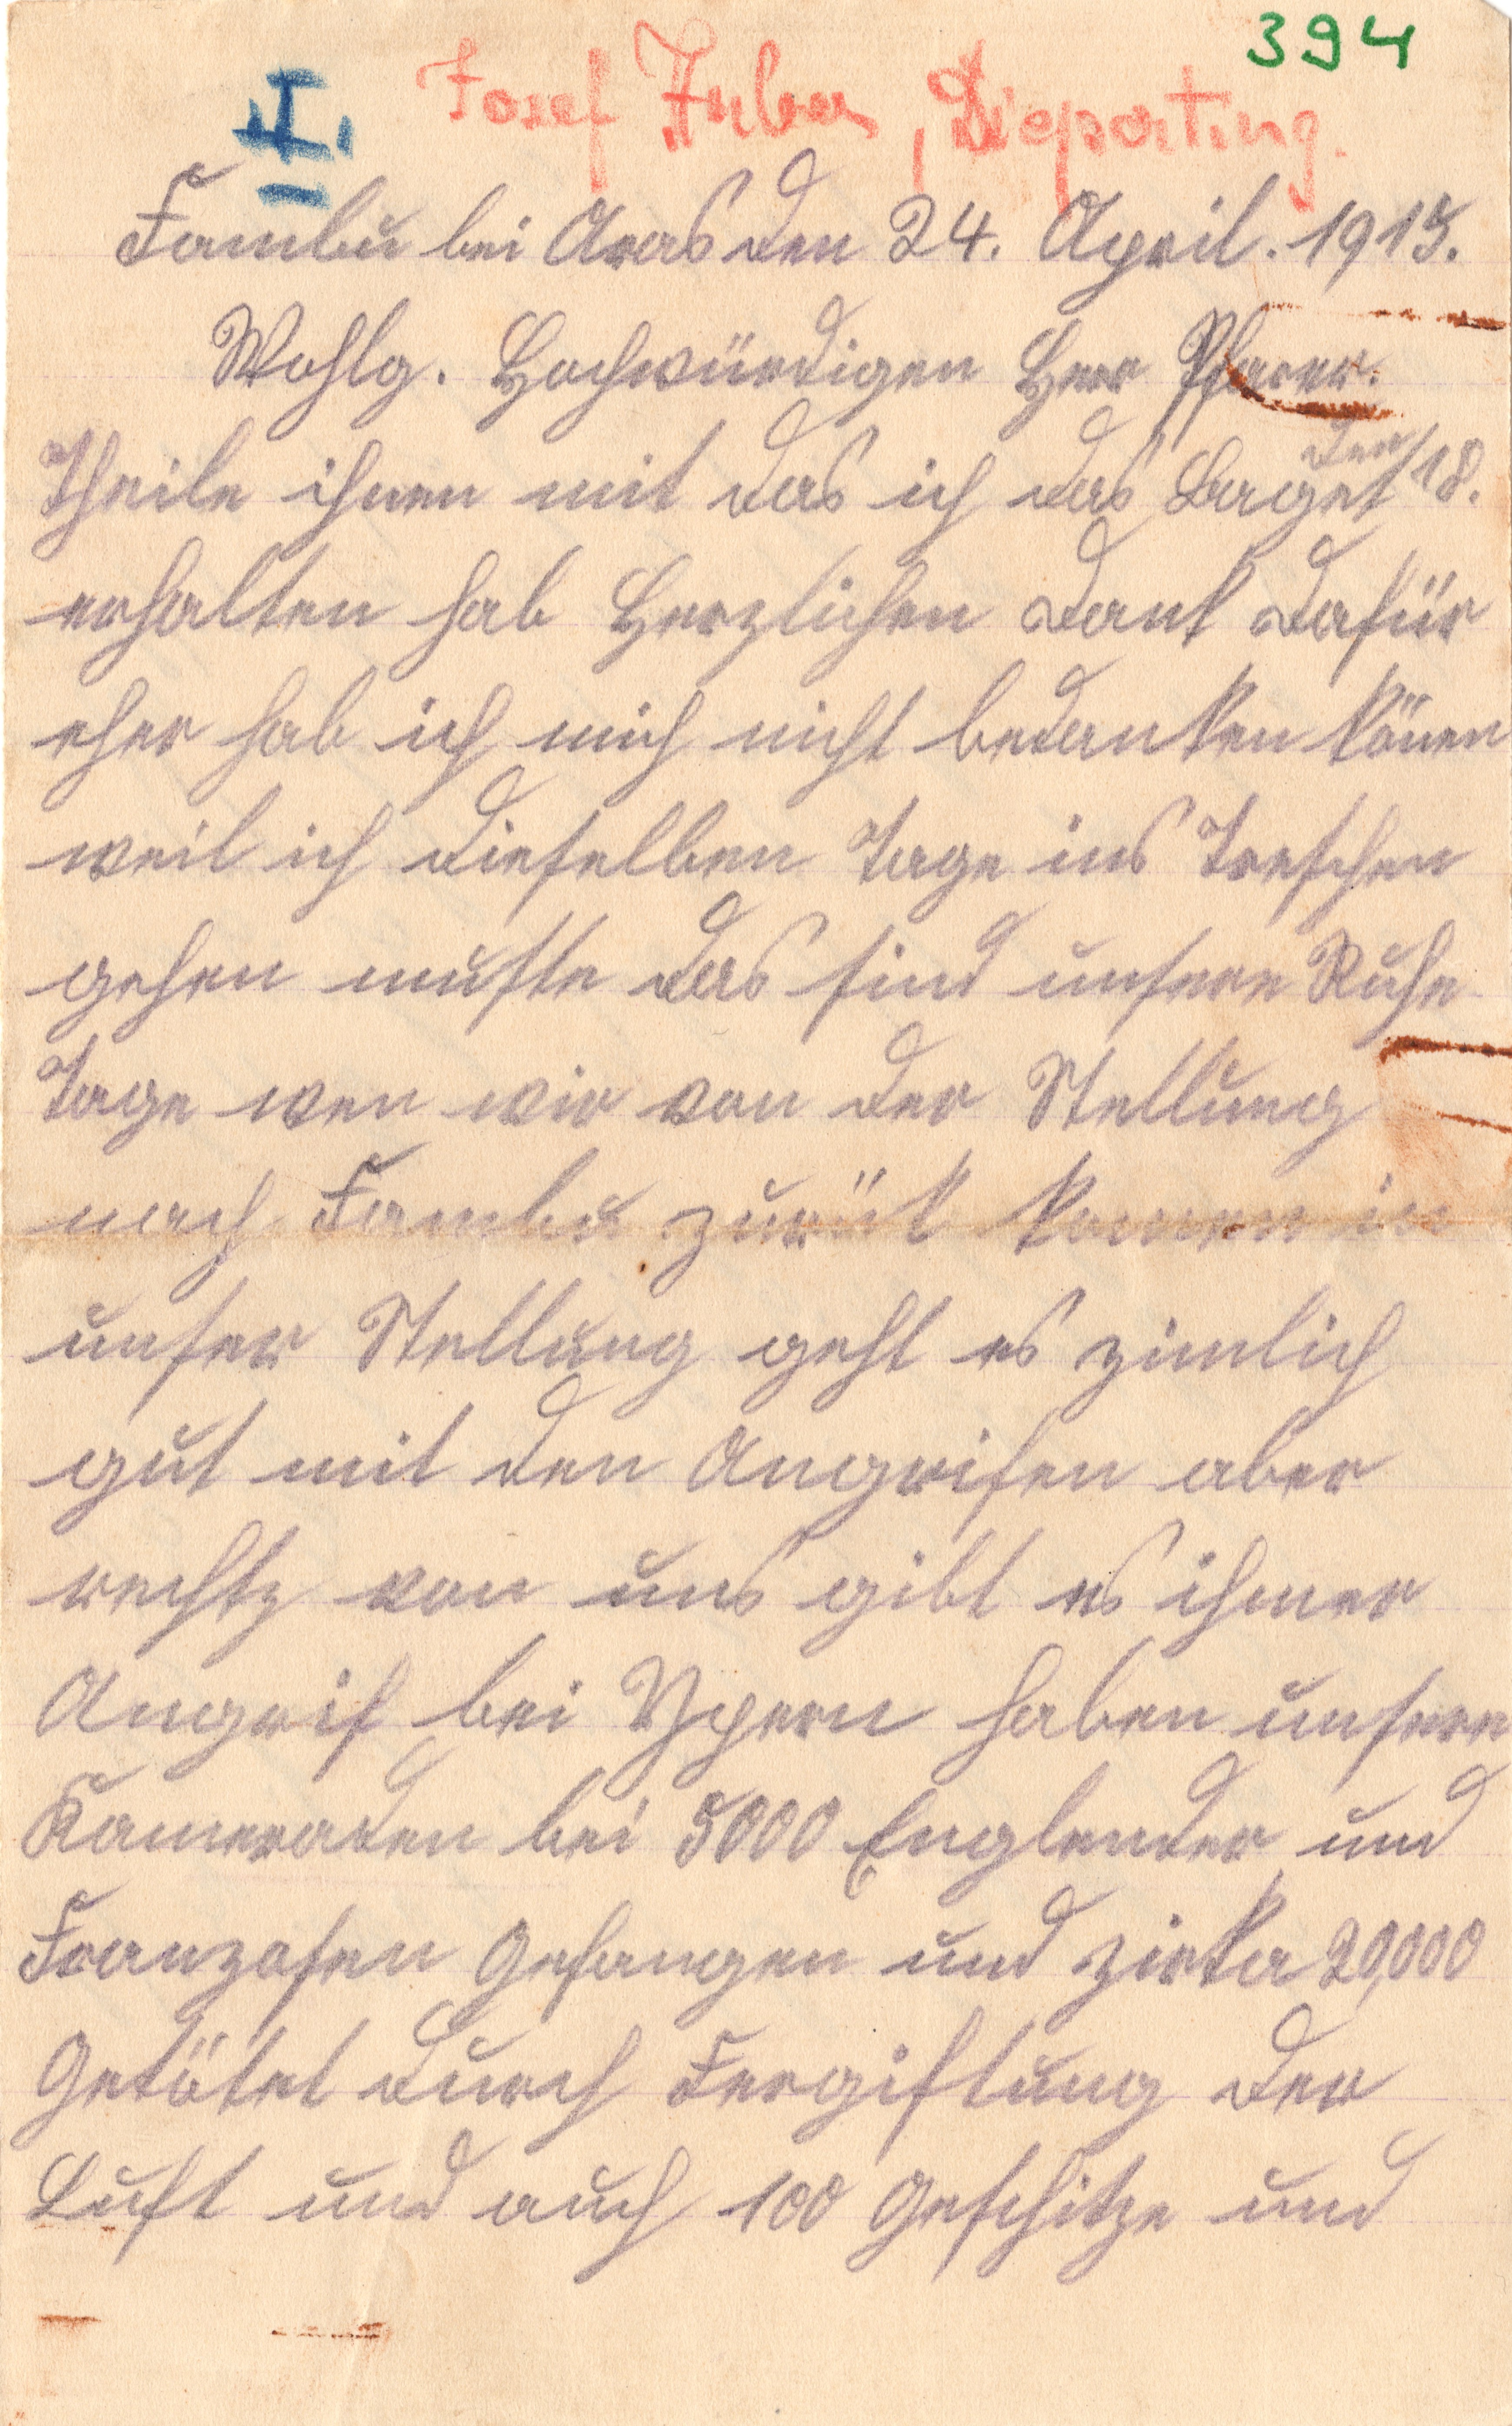 394
II. Josef Huber, Dieparting.
Fambu bei Aras den 24. April. 1915.
Wohlg. Hochwürdigen Herr Pfarer.
Theile ihnen mit das ich das Baget den 18.
erhalten hab Herzlichen Dank dafür
eher hab ich mich nicht bedanken könen
weil ich dieselben Tage ins Treschen
gehen muste das sind unsere Ruhe
Tage wen wir von der Stellung
nach Fambu zurük komen in
unser Stellung geht es zimlich
gut mit den Angrifen aber
rechtz von uns gibt es ihmer
Angrif bei Ypern haben unsere
Kameraden bei 5000 Englender und
Franzosen Gefangen und zirka 20,000
Getötet durch Fergiftung der
Luft und auch 100 Geschitze und